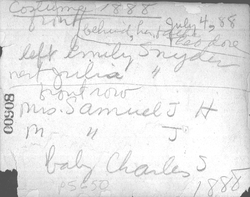 Costume 1888
front July 4, 88
behind her
left Emily Snyder
next Julia " "
front row
Mrs. Samuel J H
m " J
baby Charles S
PS-50 1888
00908